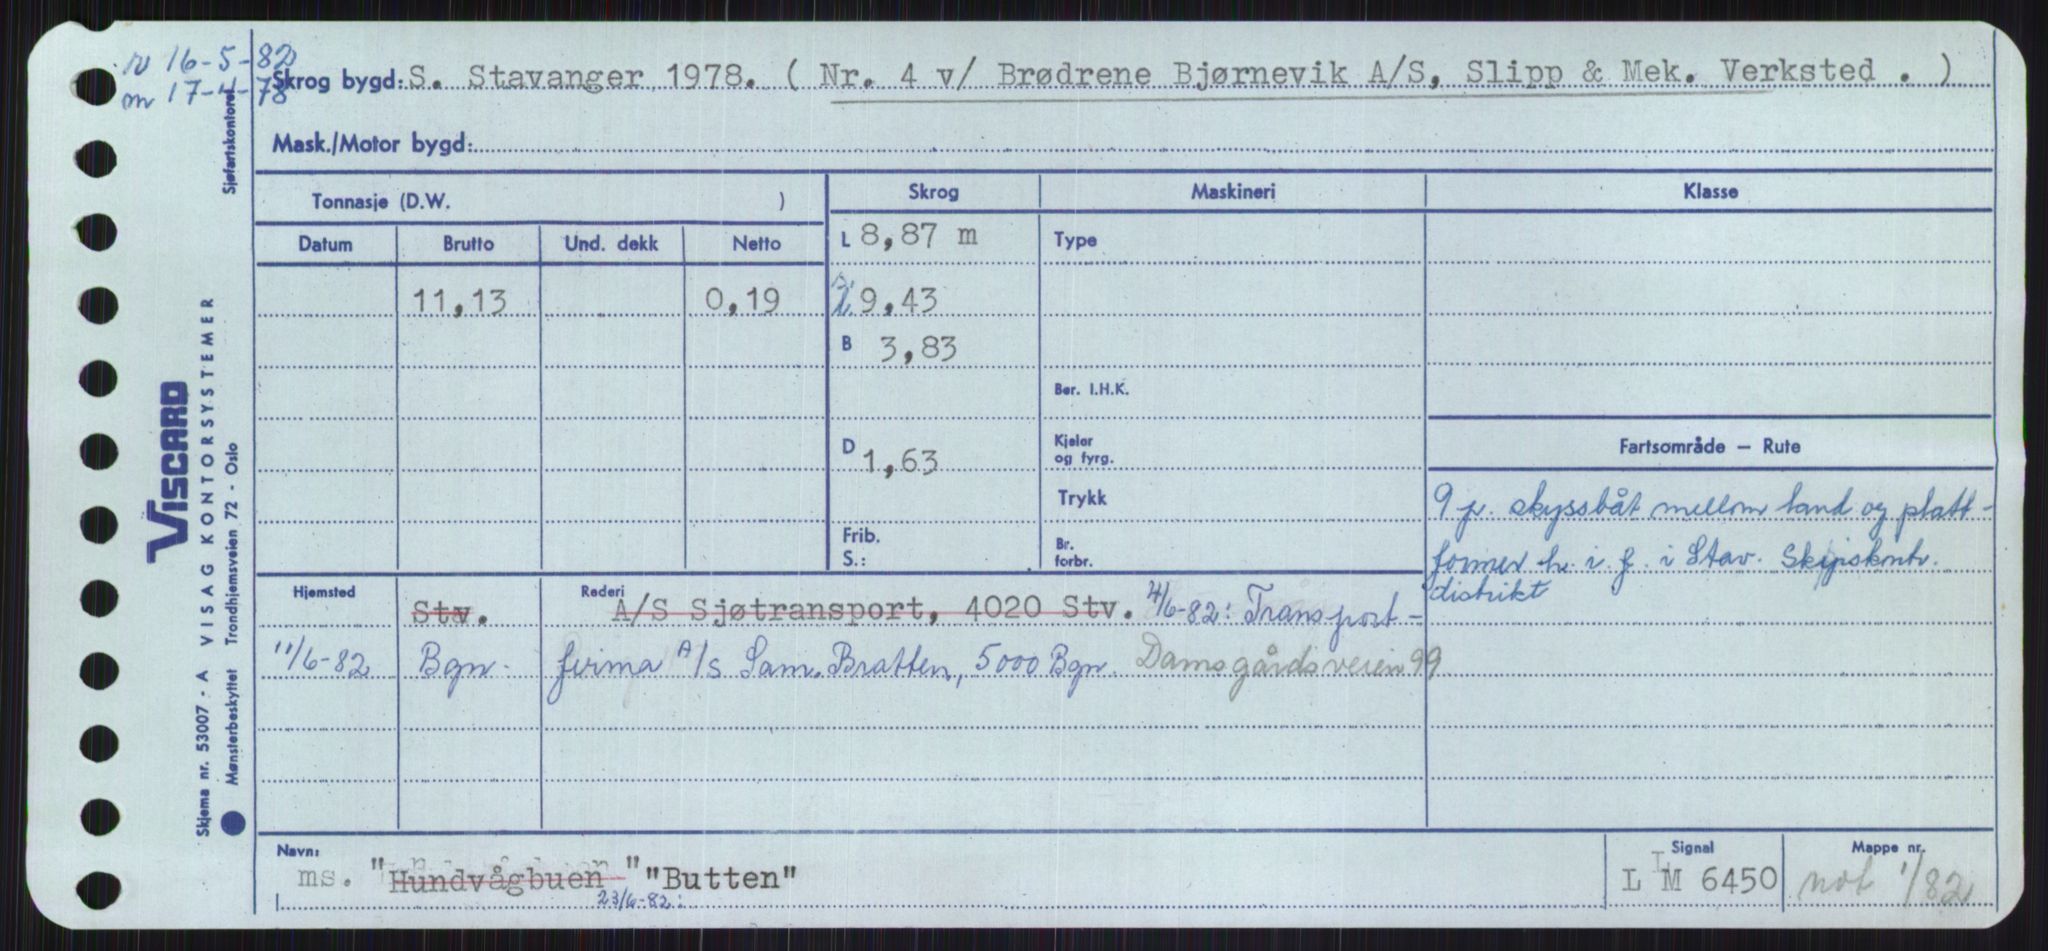 rv 16-5-82
m 17-4-78
Skrog bygd: S. Stavanger 1978. ( Nr. 4 v/ Brødrene Bjørnevik A/S, Slipp & Mek. Verksted . )
Mask./Motor bygd:
Tonnasje (D.W. )
Skrog
Maskineri
Klasse
Datum
Brutto
Und. dekk
Netto
L 8,87 m
Type
11,13
0,19
L 9,43
B 3,83
Ber. I.H.K.
D 1,63
Kjeler
og fyrg.
Fartsområde — Rute
Trykk
9 p. skyssbåt mellom land og platt-
Frib.
S.:
Br.
forbr.
former h. i f. i Stav. Skipskontr.
distrikt
Hjemsted
Stv.
Rederi
A/S Sjøtransport, 4020 Stv. 4/6-82: Transport-
11/6-82
Bgn.
firma A/S Sam. Bratten, 5000 Bgn. Damsgårdsveien 99
Navn:
ms. "Hundvågbuen" "Butten"
23/6-82:
Signal
L M 6450
Mappe nr.
not 1/82
Sjøfartskontoret
VISCARD
VISAG KONTORSYSTEMER
Skjema nr. 53007 - A
Mønsterbeskyttet
Trondhjemsveien 72 - Oslo